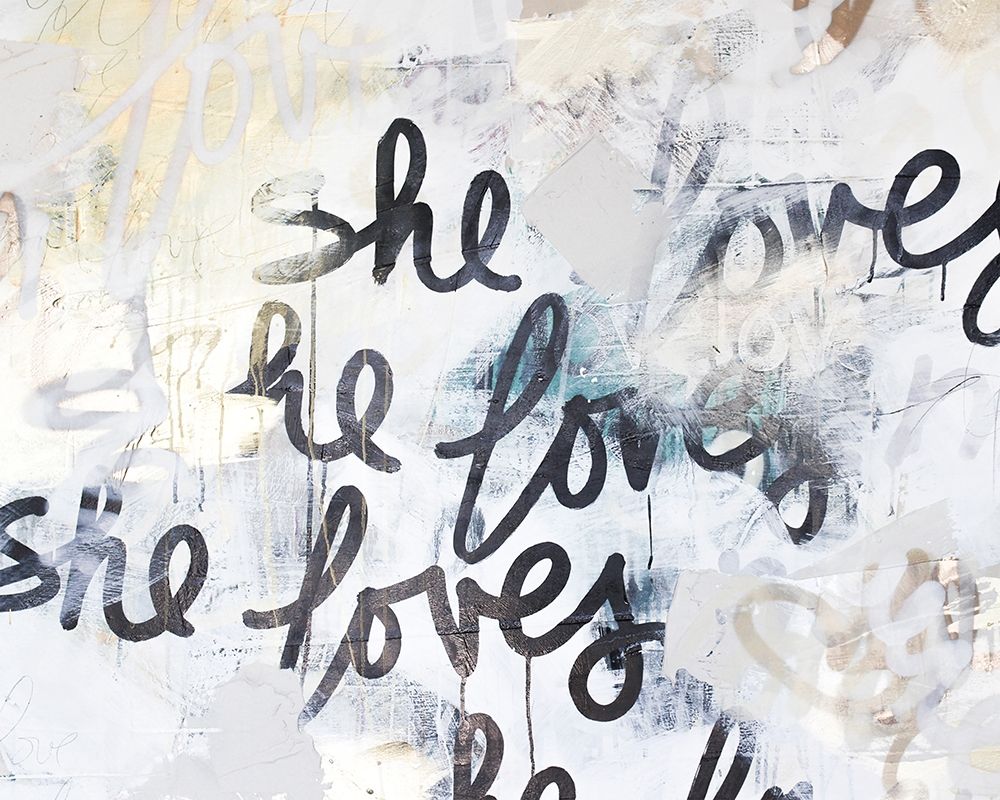 love
she loves
he loves
she loves
love
he